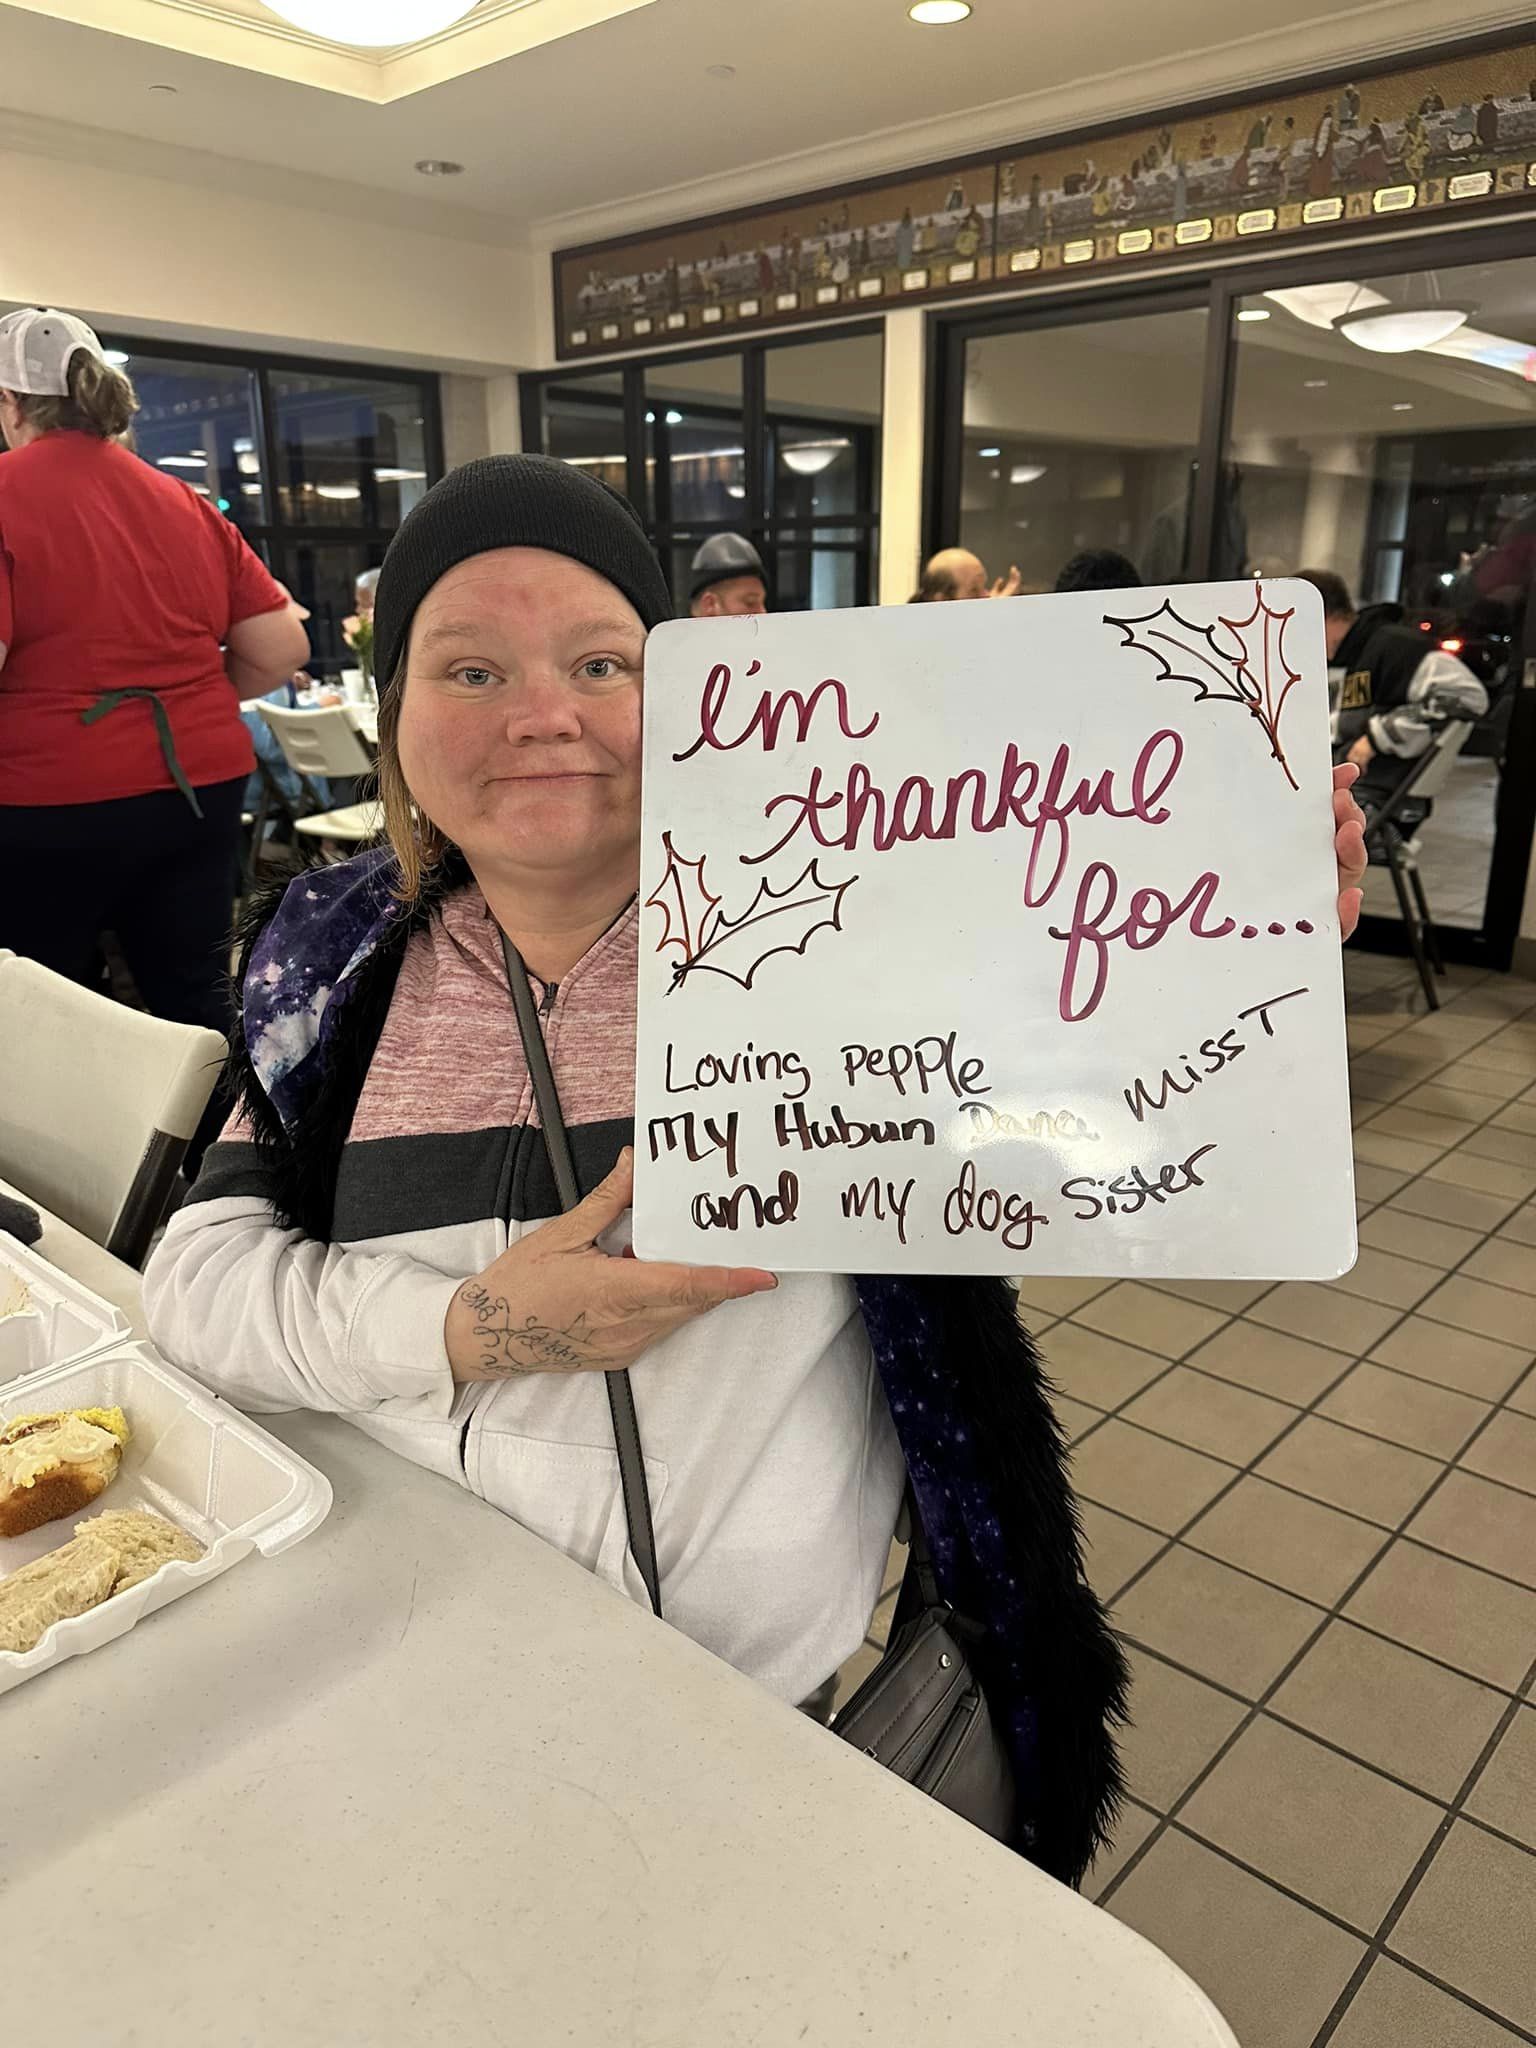 I'm
thankful
for...
Loving pepple
Miss T
My Hubun Dana
and my dog Sister